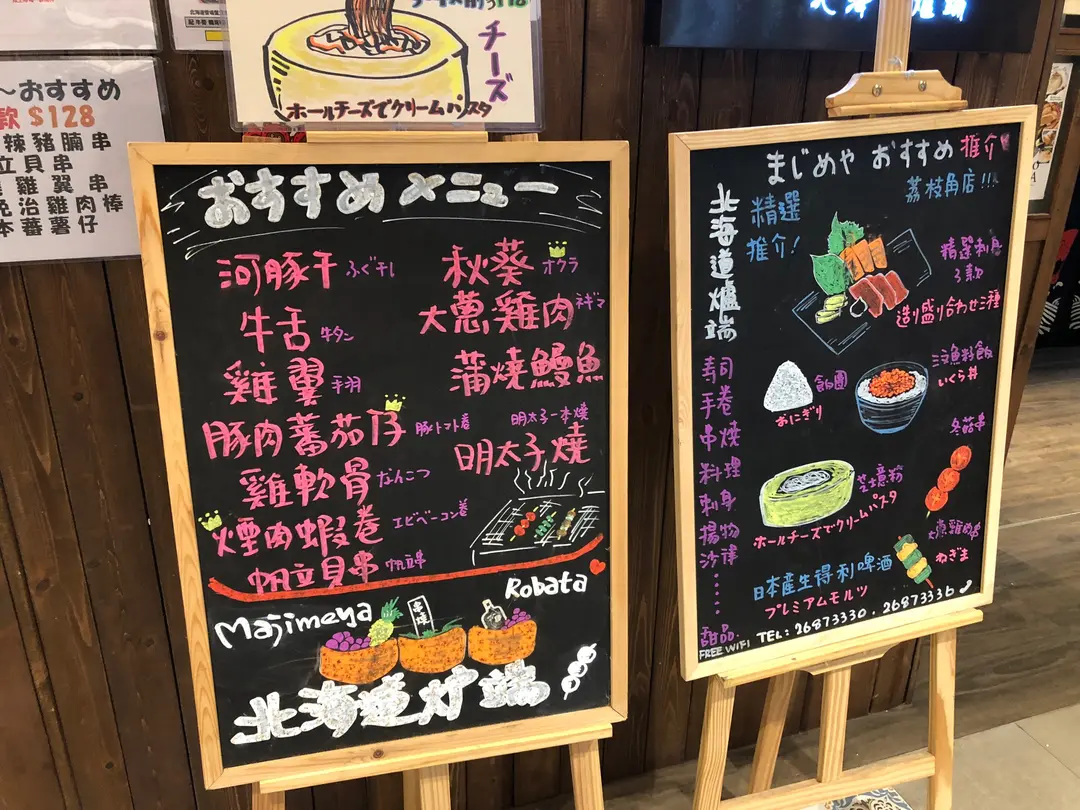 ～おすすめ
款 $128
辣豬腩串
立貝串
雞翼串
免治雞肉棒
本蕃薯仔
チーズ
ホールチーズでクリームパスタ
おすすめメニュー
河豚干 ふぐ干し
牛舌 牛タン
雞翼 手羽
豚肉蕃茄仔 豚トマト巻
雞軟骨 なんこつ
煙肉蝦卷 エビベーコン巻
帆立貝串 帆立串
秋葵 オクラ
大蔥雞肉 ネギマ
蒲燒鰻魚
明太子一本焼
明太子燒
Majimeya
串燒
Robata
北海道炉端
まじめや おすすめ 推介
荔枝角店!!!
北海道爐端
精選
推介!
精選刺身
3款
造り盛り合わせ三種
寿司
手卷
串燒
料理
刺身
揚物
沙律
甜品.
飯團
おにぎり
三文魚籽飯
いくら丼
冬菇串
芝士意粉
ホールチーズでクリームパスタ
大蔥雞肉串
ねぎま
日本産生得利啤酒
プレミアムモルツ
TEL: 26873330. 26873336
FREE WIFI